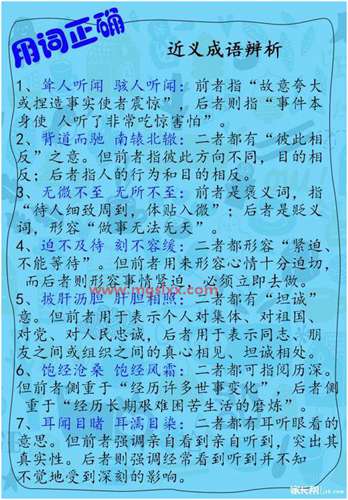 用词正确
近义成语辨析
1、耸人听闻 骇人听闻：前者指“故意夸大
或捏造事实使者震惊”，后者则指“事件本
身使 人听了非常吃惊害怕”。
2、背道而驰 南辕北辙：二者都有“彼此相
反”之意。但前者指彼此方向不同，目的相
反；后者指人的行为和目的相反。
3、无微不至 无所不至：前者是褒义词，指
“待人细致周到，体贴入微”；后者是贬义
词，形容“做事无法无天”。
4、迫不及待 刻不容缓：二者都形容“紧迫、
不能等待”。但前者用来形容心情十分迫切，
而后者则形容事情紧迫，必须立即去做。
www.mgsbxx.com
5、披肝沥胆 肝胆相照：二者都有“坦诚”
意。但前者用于表示个人对集体、对祖国、
对党、对人民忠诚，后者用于表示同志、朋
友之间或组织之间的真心相见、坦诚相处。
6、饱经沧桑 饱经风霜：二者都可指阅历深。
但前者侧重于“经历许多世事变化”，后者侧
重于“经历长期艰难困苦生活的磨炼”。
7、耳闻目睹 耳濡目染：二者都有耳听眼看的
意思。但前者强调亲自看到亲自听到，突出其
真实性。后者则强调经常看到听到并不知
不觉地受到深刻的影响。
家长帮